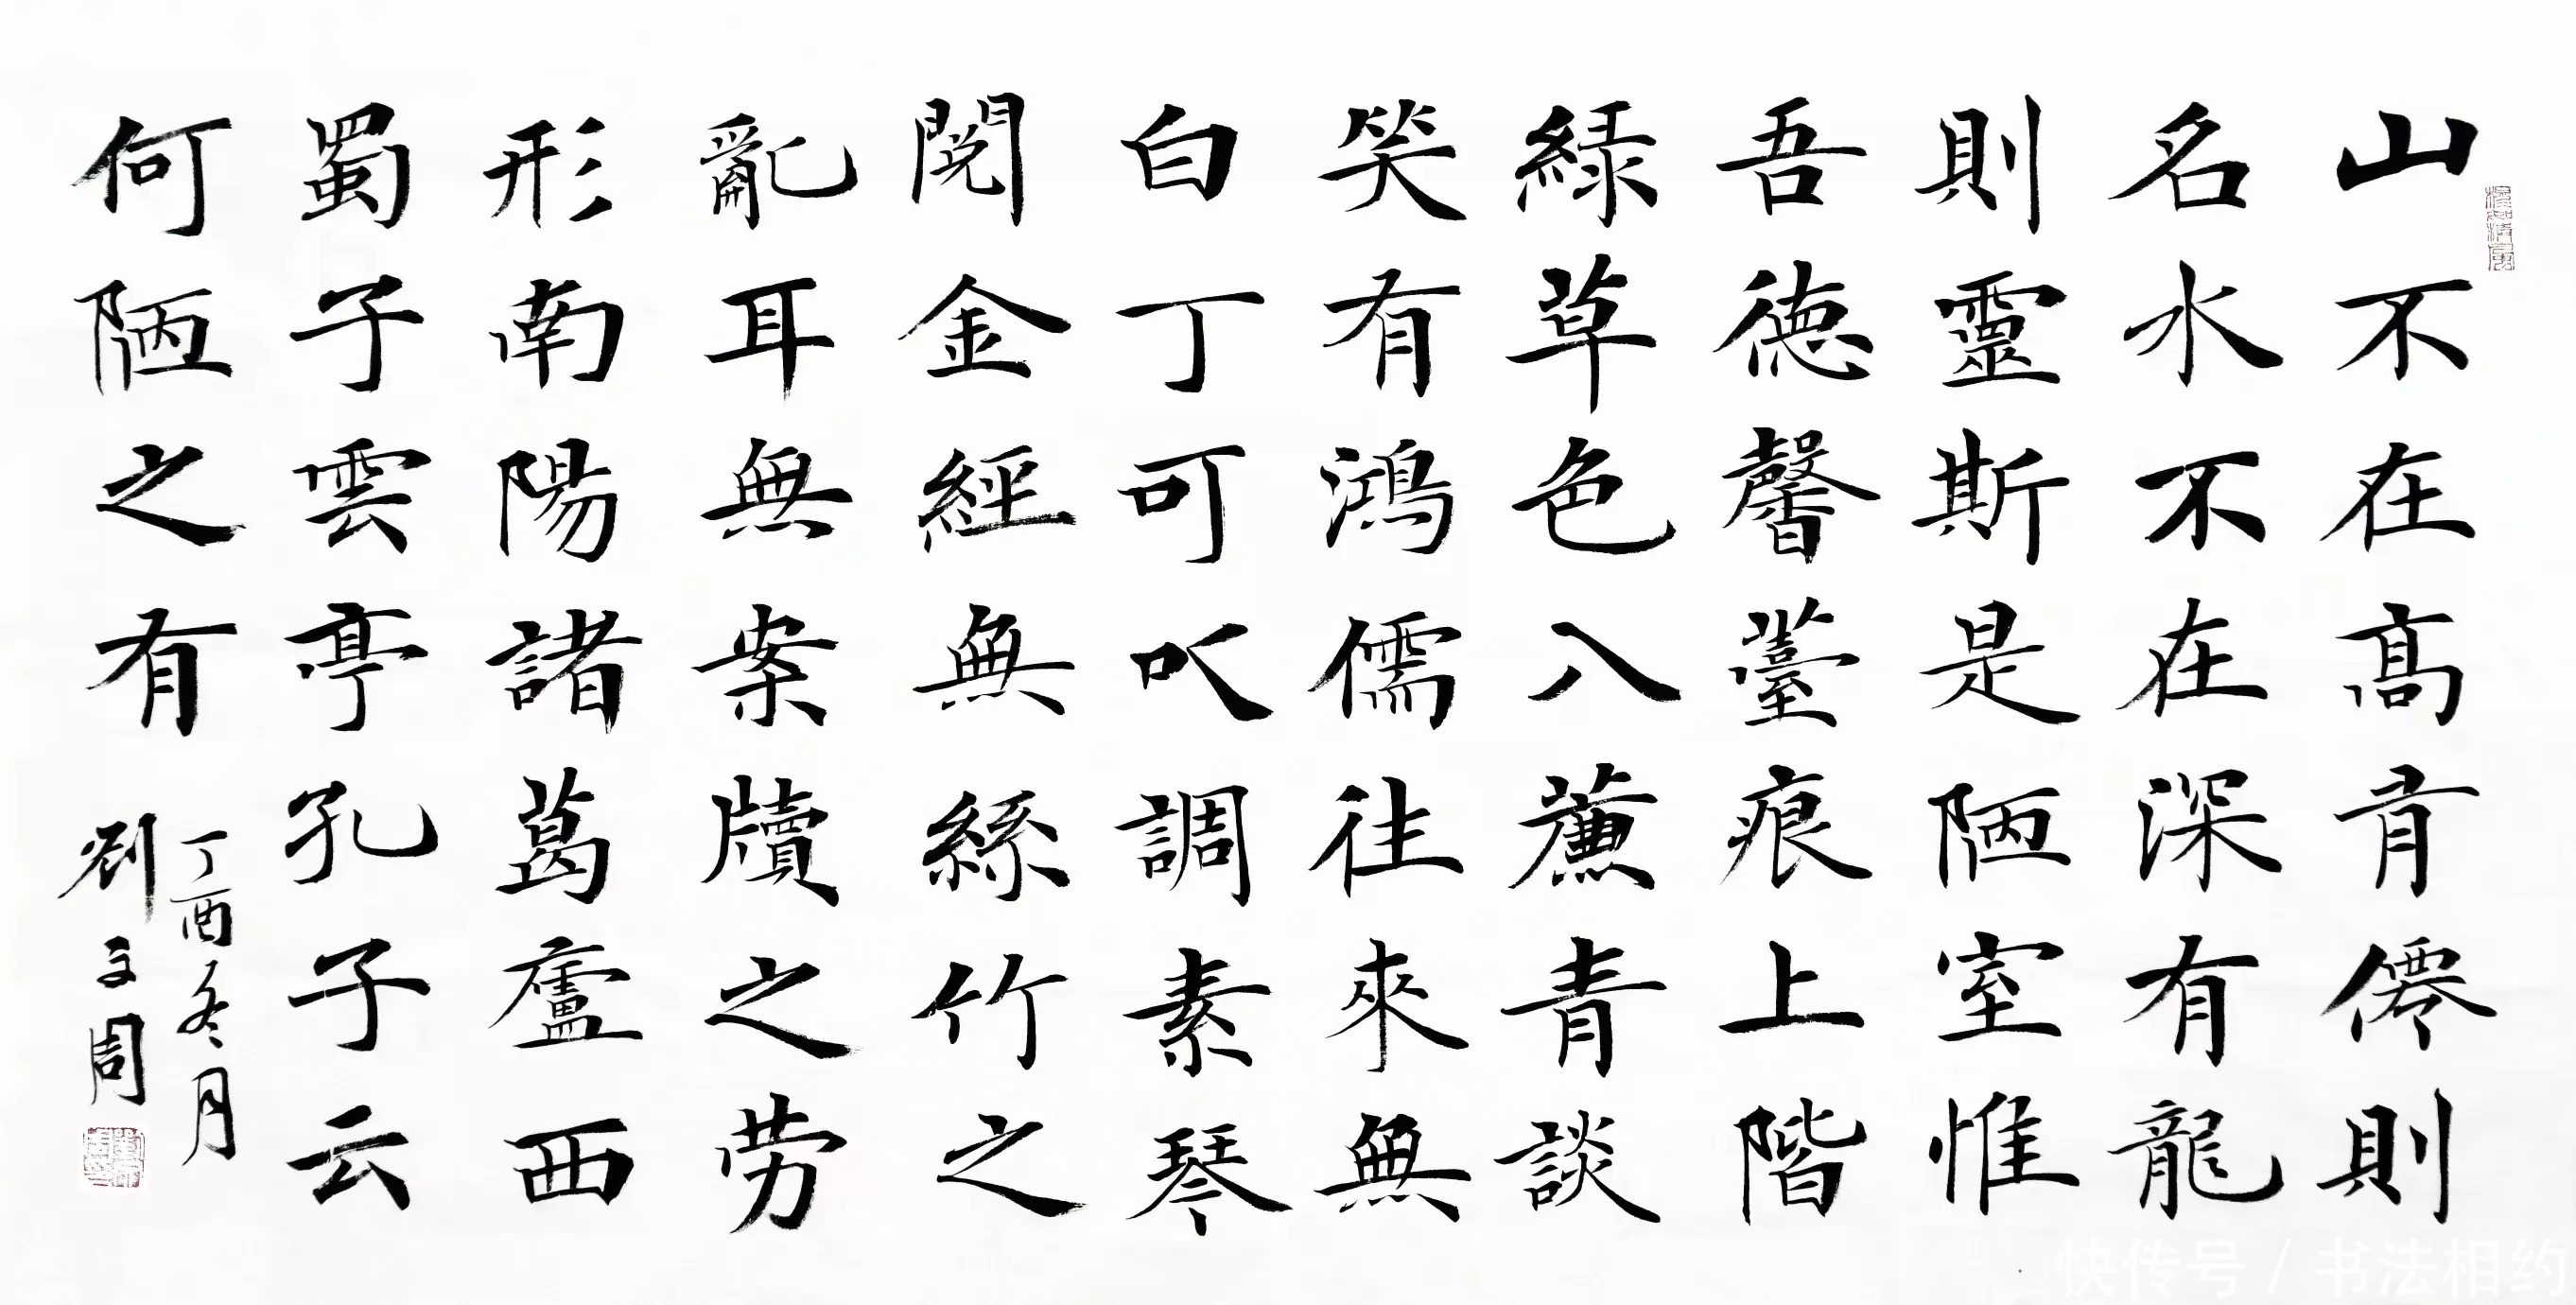 山不在高有僊則
名水不在深有龍
則靈斯是陋室惟
吾德馨薹痕上階
綠草色入薕青談
笑有鴻儒往來無
白丁可以調素琴
閱金經無絲竹之
亂耳無案牘之劳
形南陽諸葛廬西
蜀子雲亭孔子云
何陋之有
丁酉冬月
刘文周
快传号 / 书法相约